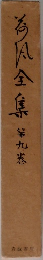 荷風全集
第九巻